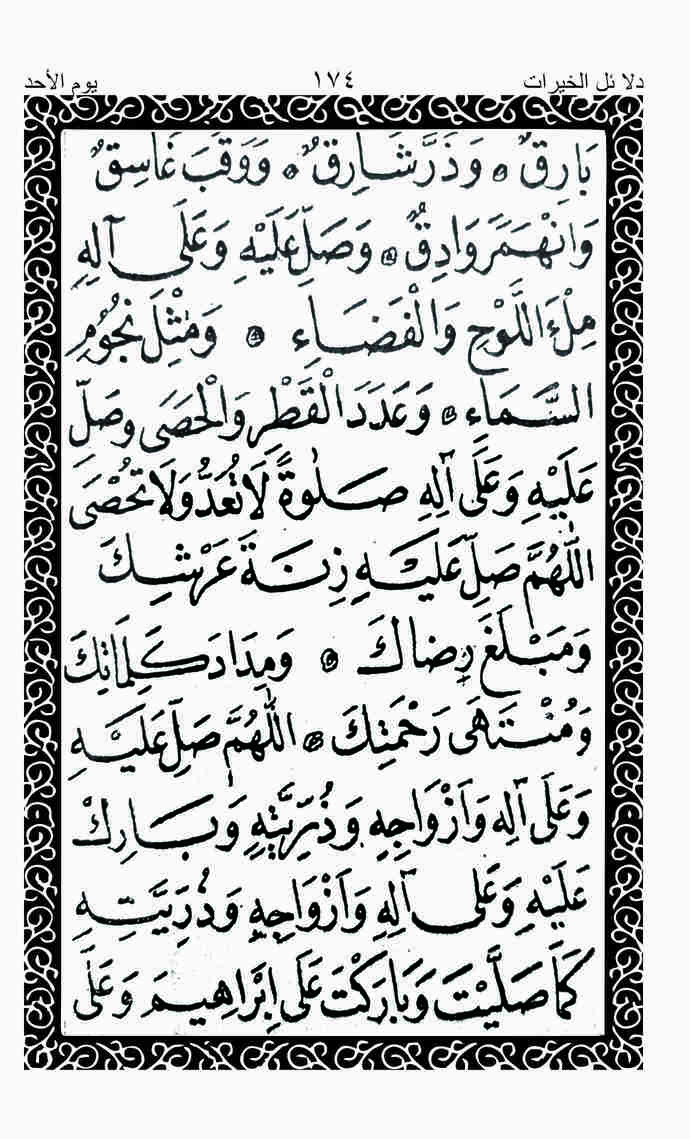 دلا ئل الخيرات ١٧٤ يوم الأحد
بَارِقٌ ۞ وَذَرَّ شَارِقٌ ۞ وَوَقَبَ غَاسِقٌ
وَانْهَمَرَ وَادِقٌ ۞ وَصَلِّ عَلَيْهِ وَعَلَى آلِهِ
مِلْءَ اللَّوْحِ وَالْفَضَاءِ ۞ وَمِثْلَ نُجُومِ
السَّمَاءِ ۞ وَعَدَدَ الْقَطْرِ وَالْحَصَى وصَلِّ
عَلَيْهِ وَعَلَى آلِهِ صَلٰوةً لَا تُعَدُّ وَلَا تُحْصَى
اللّٰهُمَّ صَلِّ عَلَيْهِ زِنَةَ عَرْشِكَ
وَمَبْلَغَ رِضَاكَ ۞ وَمِدَادَ كَلِمَاتِكَ
وَمُنْتَهَى رَحْمَتِكَ ۞ اللّٰهُمَّ صَلِّ عَلَيْهِ
وَعَلَى آلِهِ وَأَزْوَاجِهِ وَذُرِّيَّتِهِ وَبَارِكْ
عَلَيْهِ وَعَلَى آلِهِ وَأَزْوَاجِهِ وَذُرِّيَّتِهِ
كَمَا صَلَّيْتَ وَبَارَكْتَ عَلَى إِبْرَاهِيمَ وَعَلَى